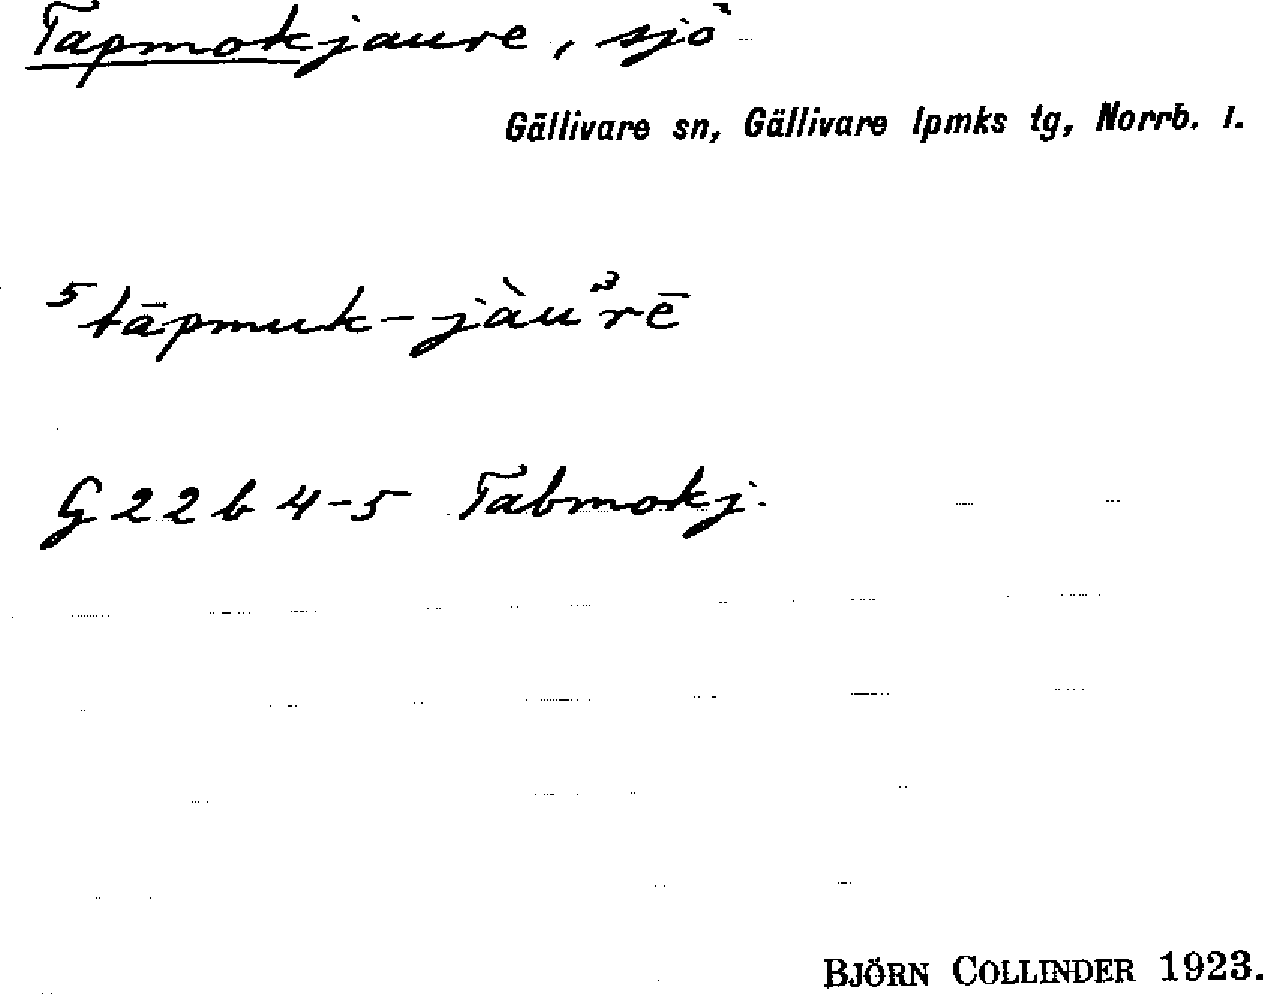 Tapmokjaure, sjö
Gällivare sn, Gällivare lpmks tg, Norrb. l.
⁵tāpmuk-jàu³rē
G 22 b 4-5 Tabmokj.
BJÖRN COLLINDER 1923.